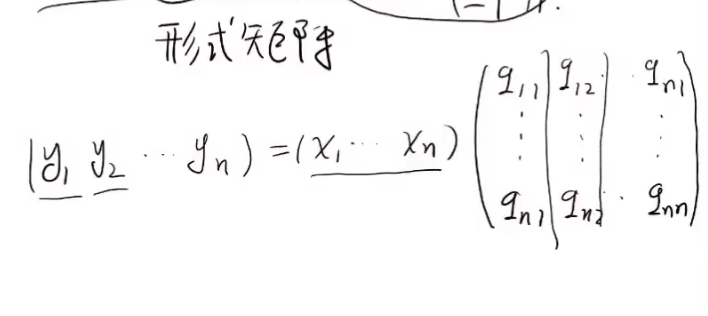 形式矩阵
(y₁ y₂ ⋯ yₙ) = (x₁ ⋯ xₙ) (q₁₁ q₁₂ ⋅ qₙ₁
⋮ ⋮ ⋮
qₙ₁ qₙ₂ ⋅ qₙₙ)